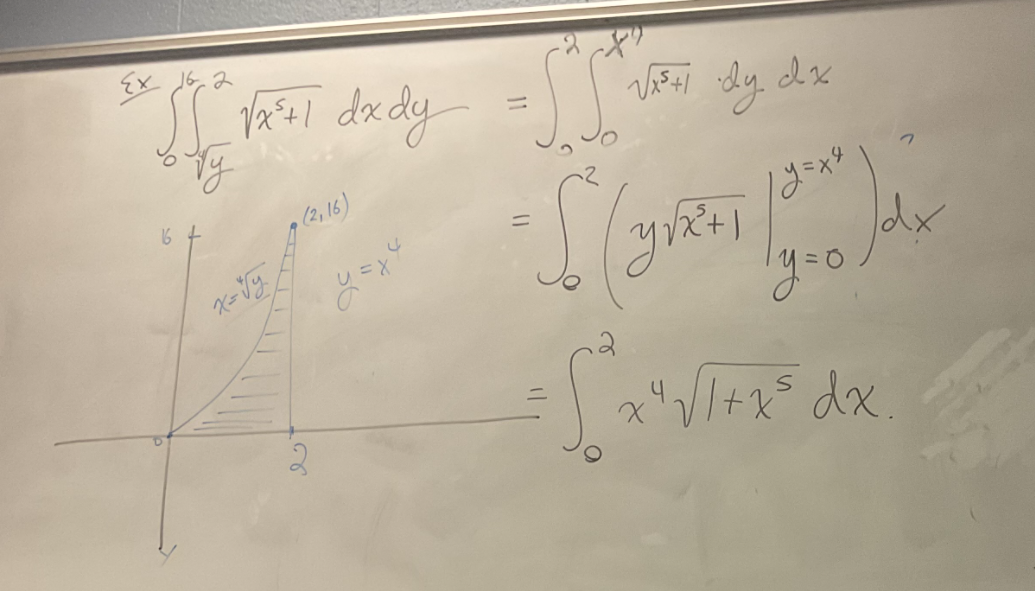 Ex ∫₀¹⁶ ∫_{∜y}² √(x⁵+1) dx dy = ∫₀² ∫₀^{x⁴} √(x⁵+1) · dy dx
= ∫₀² ( y√(x⁵+1) |_{y=0}^{y=x⁴} ) dx
= ∫₀² x⁴ √(1+x⁵) dx.
16
(2,16)
x=∜y
y=x⁴
0
2